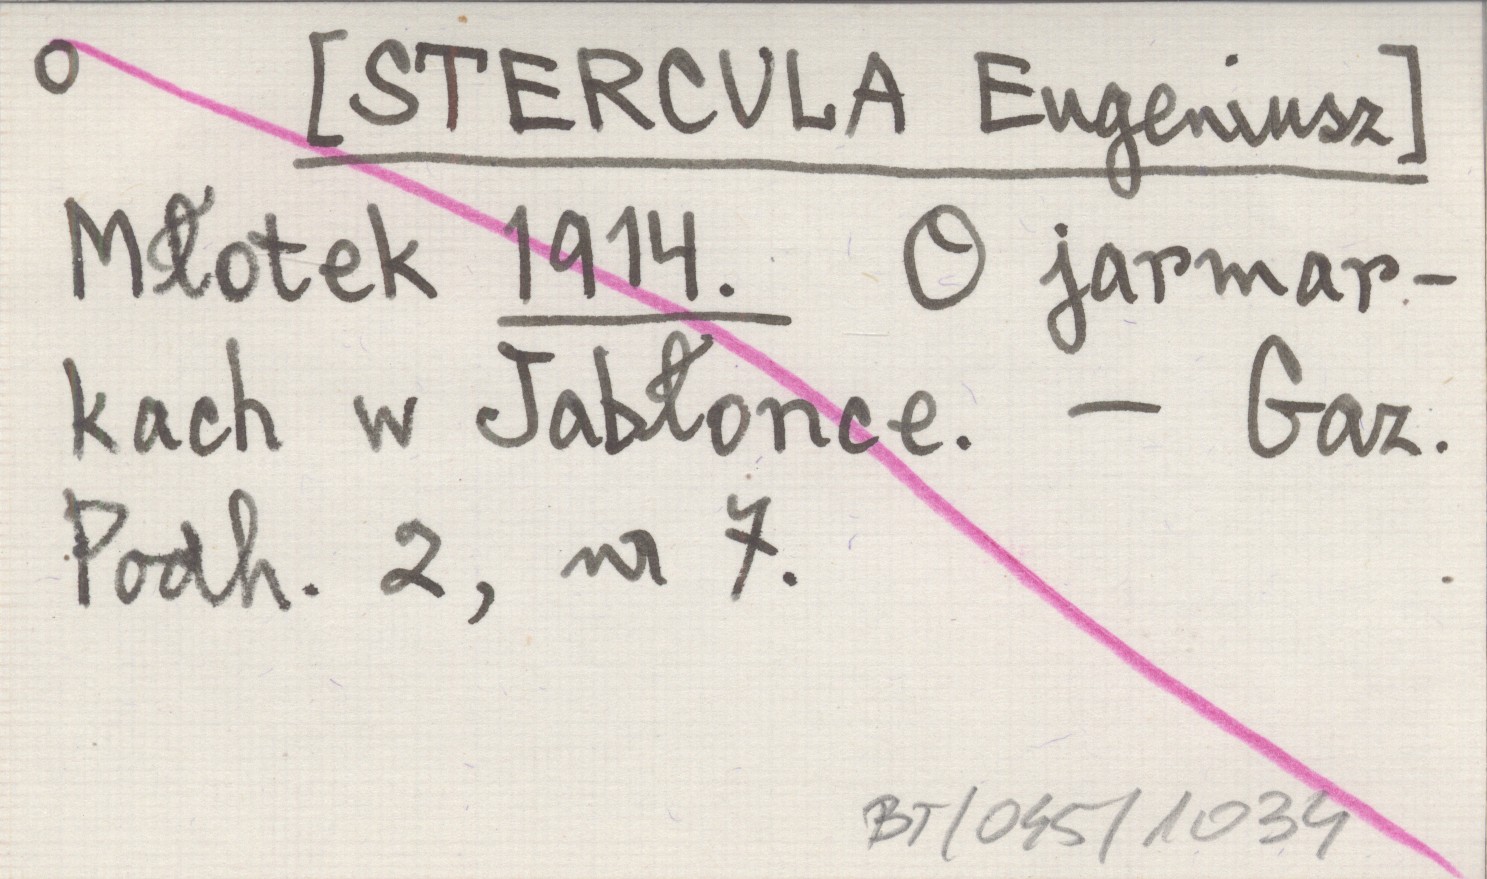 O [STERCULA Eugeniusz]
Młotek 1914. O jarmar-
kach w Jabłonce. — Gaz.
Podh. 2, nr 7.
BT/045/1034